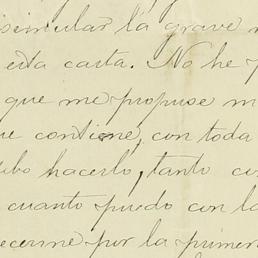 isimular la grave
esta carta. No he p
que me propuse m
ue contiene, con toda
ebo hacerlo, tanto co
cuanto puedo con la
ecerme por la primer